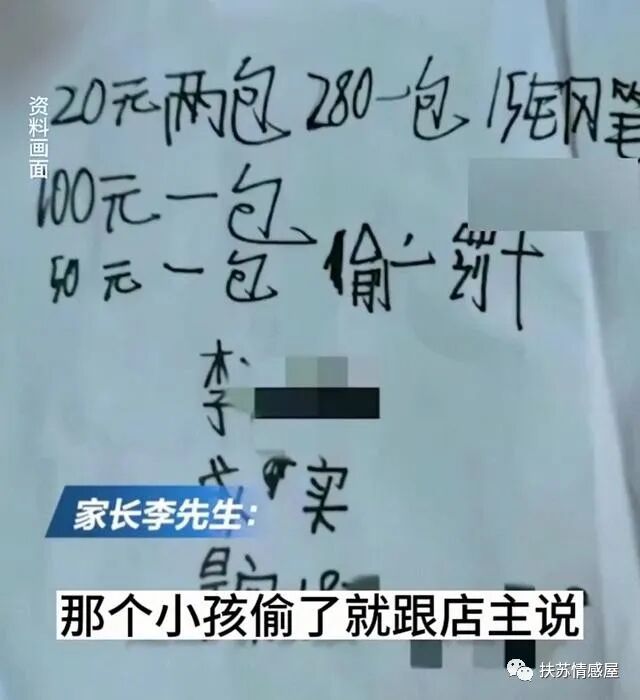 资料画面
20元两包 280一包 15钢笔
100元一包
50元一包 偷一罚十
李
买
家长李先生：
那个小孩偷了就跟店主说
扶苏情感屋